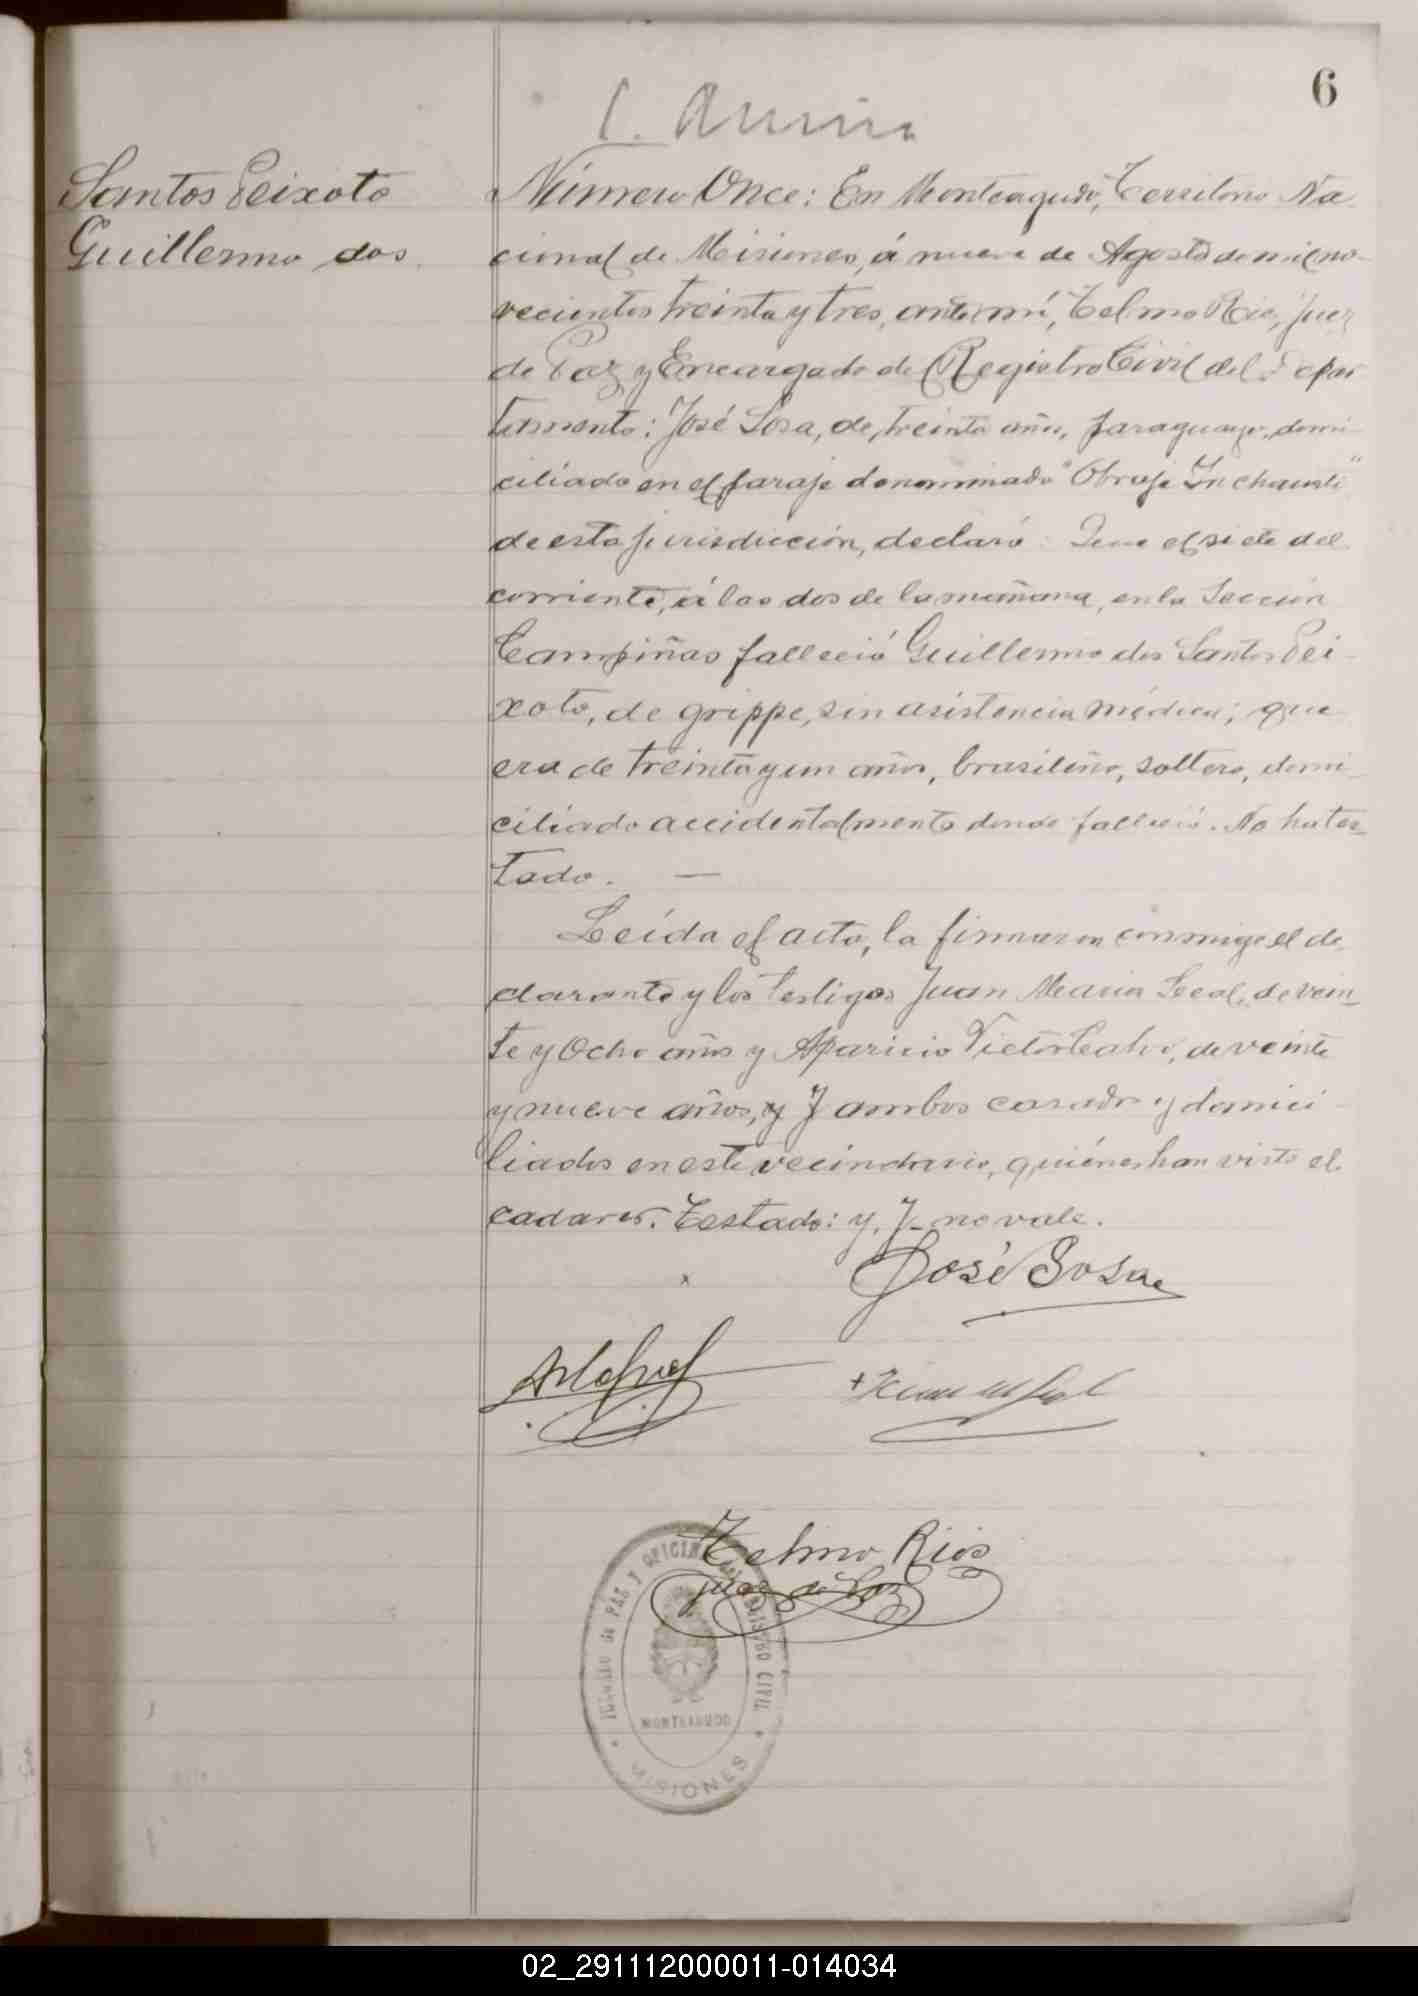 6
Santos Peixoto
Guillermo dos
Número Once: En Monteagudo, Territorio Na
cional de Misiones, á nueve de Agosto de mil no-
vecientos treinta y tres, ante mí, Telmo Rios, Juez
de Paz y Encargado de Registro Civil del Depar
tamento: José Sosa, de, treinta años, paraguayo, domi-
ciliado en el paraje denominado "Obraje Inchausti"
de esta jurisdicción, declaró: Que el siete del
corriente, á las dos de la mañana, en la Sección
Campiñas falleció Guillermo dos Santos Pei-
xoto, de grippe, sin asistencia médica; que
era de treinta y un años, brasileño, soltero, domi-
ciliado accidentalmente donde falleció. No ha tes-
tado. —
Leída el acta, la firmaron conmigo el de
clarante y los testigos Juan Maria Leal, de vein-
te y Ocho años y Aparicio Victor, de veinte
y nueve años, y J ambos casados y domici-
liados en este vecindario, quiénes han visto el
cadaver. Testado: y, J- no vale.
x
José Sosa
Telmo Rios
Juez de Paz
JUZGADO de PAZ Y OFICINA del REGISTRO CIVIL
MONTEAGUDO
MISIONES
02_291112000011-014034